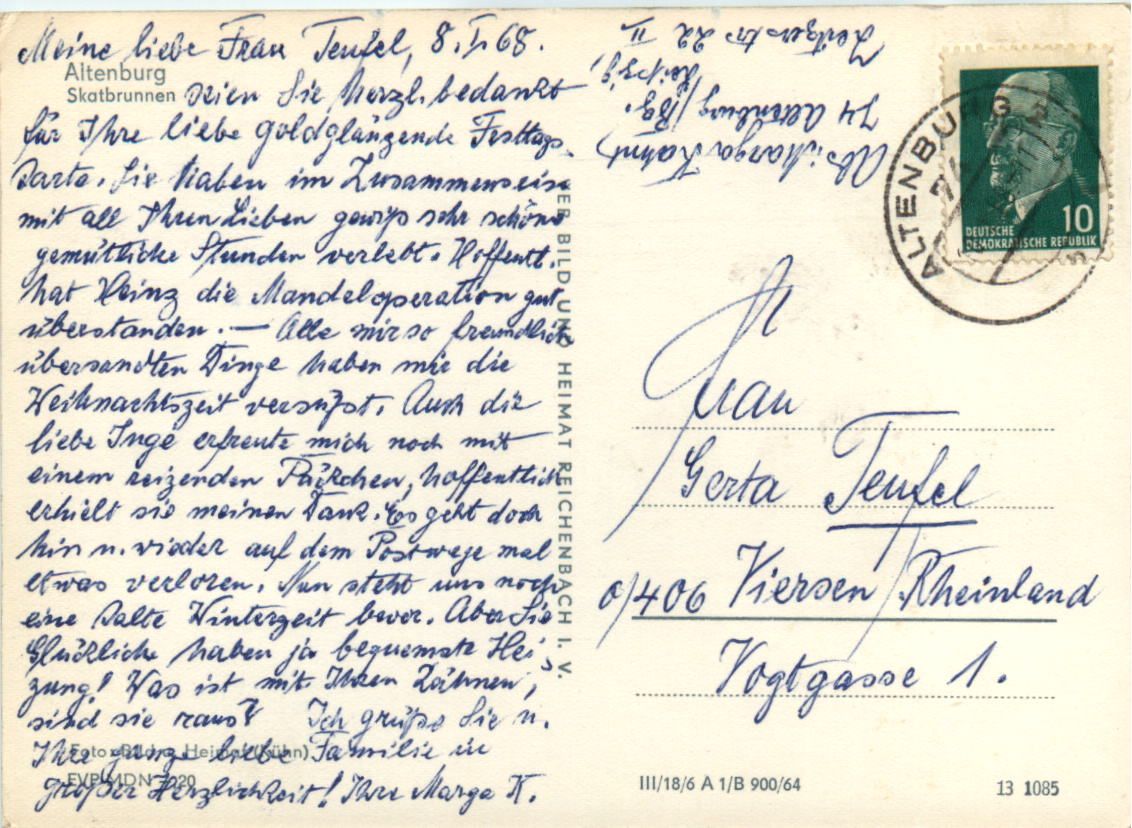 Meine liebe Frau Teufel, 8.I.68.
Altenburg
Skatbrunnen
seien Sie herzl. bedankt
für Ihre liebe goldglänzende Festtags-
karte. Sie haben im Zusammensein
mit all Ihren Lieben gewiß sehr schöne
gemütliche Stunden verlebt. Hoffentl.
hat Heinz die Mandeloperation gut
überstanden. — Alle mir so freundlich
übersandten Dinge haben mir die
Weihnachtszeit versüßt. Auch die
liebe Inge erfreute mich noch mit
einem reizenden Päckchen, hoffentlich
erhielt sie meinen Dank. Es geht doch
hin u. wieder auf dem Postwege mal
etwas verloren. Nun steht uns noch
eine kalte Winterzeit bevor. Aber Sie
Glückliche haben ja bequemste Hei-
zung! Was ist mit Ihren Zähnen,
sind sie raus? Ich grüße Sie u.
Ihre ganze liebe Familie in
großer Herzlichkeit! Ihre Marga K.
Foto: Bild u. Heimat (Kühn)
EVP MDN 0,20
BILD UND HEIMAT REICHENBACH I. V.
Abs: Marga Kühn
74 Altenburg/Bz.
Leipzig,
Zeitzerstr 22 II
ALTENBURG
DEUTSCHE
DEMOKRATISCHE REPUBLIK
10
Frau
Gerta Teufel
406 Viersen/Rheinland
Vogtgasse 1.
III/18/6 A 1/B 900/64
13 1085